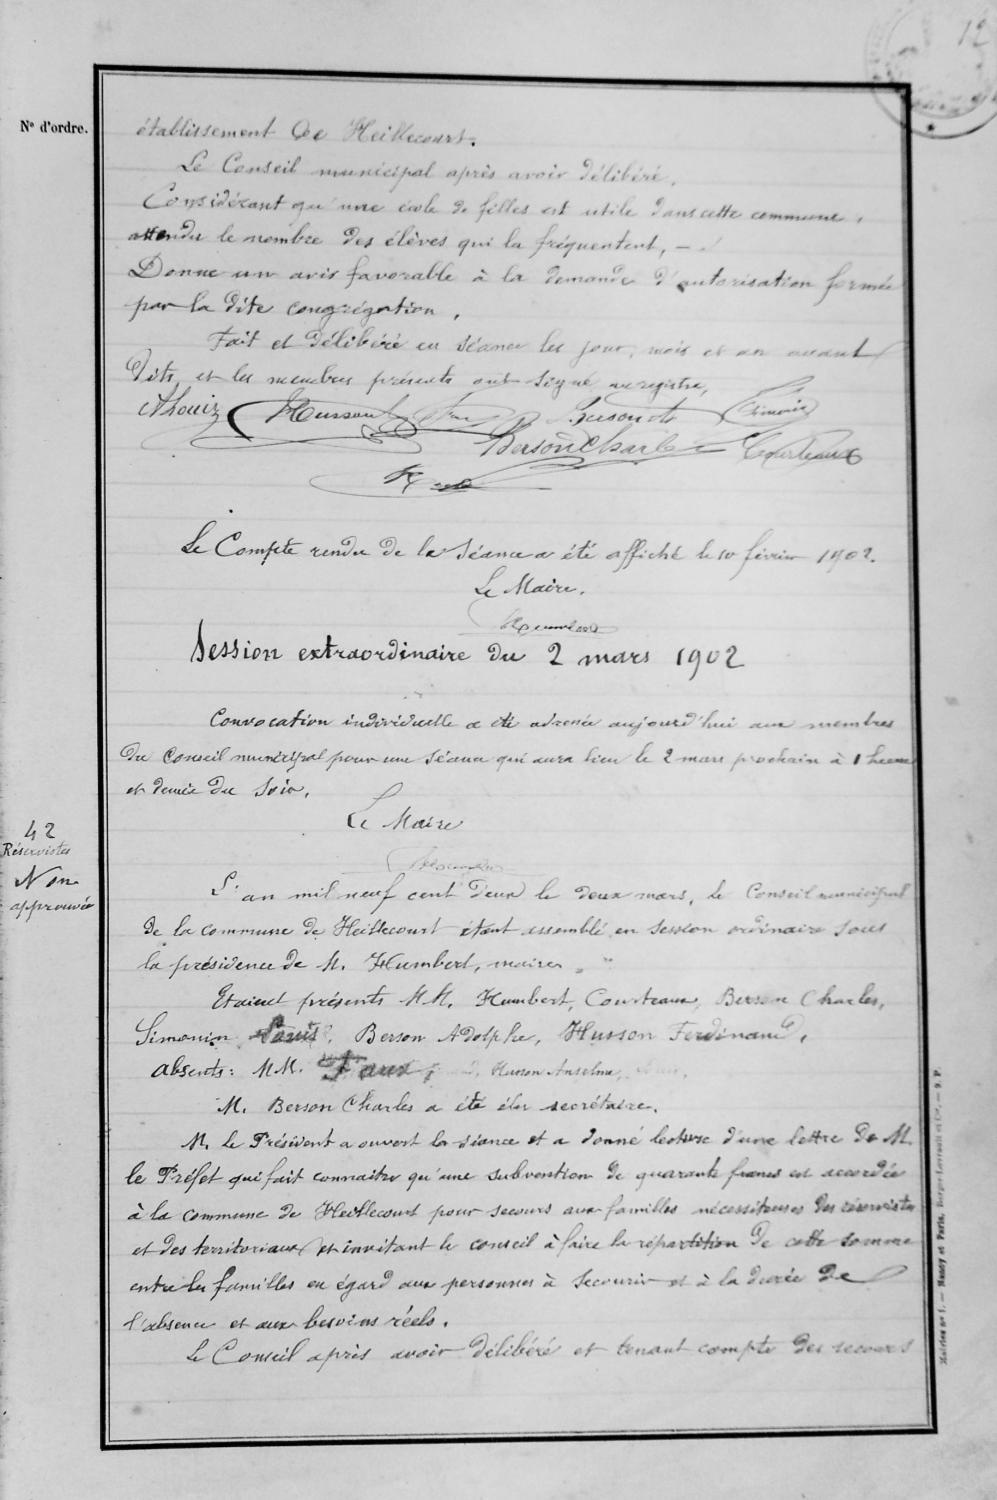 12
Nº d'ordre.
établissement de Heillecourt.
Le Conseil municipal après avoir délibéré,
Considérant qu'une école de filles est utile dans cette commune,
attendu le nombre des élèves qui la fréquentent, –
Donne un avis favorable à la demande d'autorisation formée
par la dite congrégation.
Fait et délibéré en séance les jour, mois et an avant
dits, et les membres présents ont signé au registre,
Husson Berson Simonin
Berson Charles Courteaux
Le Compte rendu de la séance a été affiché le 10 février 1902.
Le Maire.
Humbert
Session extraordinaire du 2 mars 1902
Convocation individuelle a été adressée aujourd'hui aux membres
du Conseil municipal pour une séance qui aura lieu le 2 mars prochain à 1 heure
et demie du soir.
Le Maire
Humbert
42
Réservistes
Non
approuvée
L'an mil neuf cent deux le deux mars, le Conseil municipal
de la commune de Heillecourt étant assemblé en session ordinaire sous
la présidence de M. Humbert, maire,
Etaient présents MM. Humbert, Courteaux, Berson Charles,
Simonin Louis, Berson Adolphe, Husson Ferdinand,
absents: MM. Faux, Husson Anselme,
M. Berson Charles a été élu secrétaire.
M. le Président a ouvert la séance et a donné lecture d'une lettre de M.
le Préfet qui fait connaitre qu'une subvention de quarante francs est accordée
à la commune de Heillecourt pour secours aux familles nécessiteuses des réservistes
et des territoriaux et invitant le conseil à faire la répartition de cette somme
entre les familles eu égard aux personnes à secourir et à la durée de
l'absence et aux besoins réels.
Le Conseil après avoir délibéré et tenant compte des secours
Mairies nº 1. — Nancy et Paris, Berger-Levrault et Cie. — 9. P.